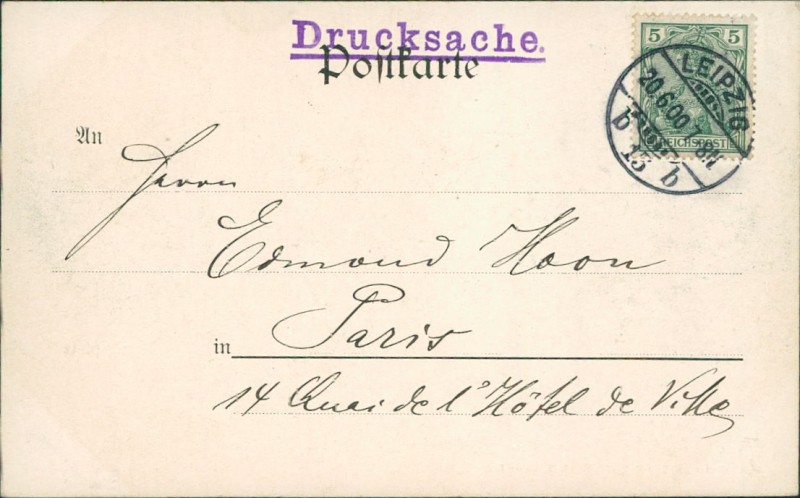 Drucksache.
Postkarte
5 5
REICHSPOST
LEIPZIG
20.6.00.7-8N.
13
b b
An
Herrn
Edmond Haon
in Paris
14 Quai de l'Hôtel de Ville